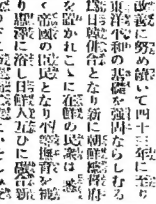 改善に努め節いて四十三年に至
東洋平和の基礎を強固ならしむる
爲日韓併合となり新に朝鮮總督府
を置かれこゝに在鮮の民衆は悉
く帝國の臣民となり 撫育を被
り 澤に浴し日鮮人互ひに融合新